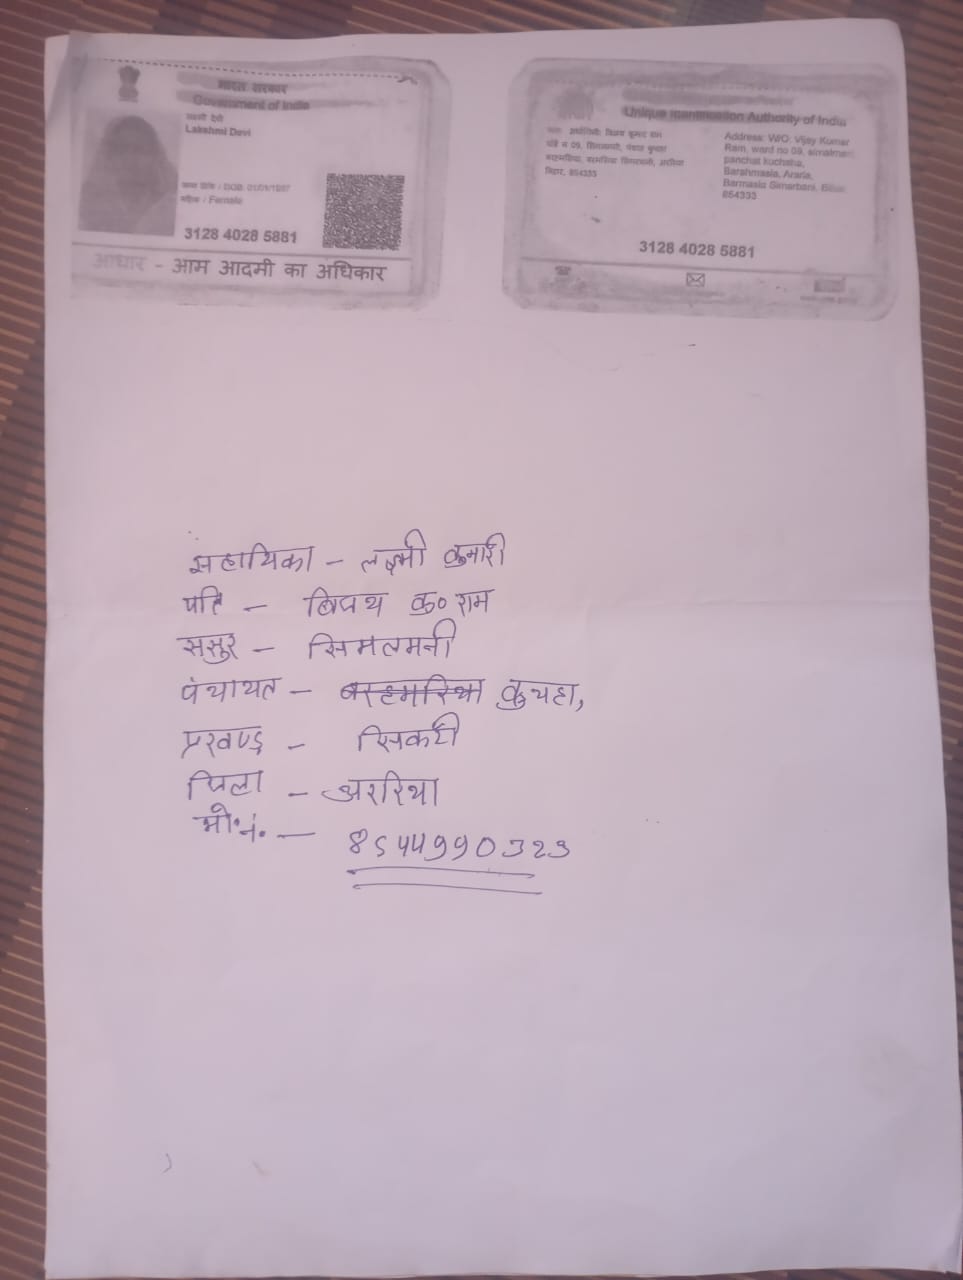 भारत सरकार
Government of India
लक्ष्मी देवी
Lakshmi Devi
जन्म तिथि / DOB: 01/01/1987
महिला / Female
3128 4028 5881
आधार - आम आदमी का अधिकार
Unique Identification Authority of India
विजय कुमार राम
वार्ड न 09,
बिहार, 854333
Address: W/O: Vijay Kumar
Ram, ward no 09, simalmani
panchat kuchaha,
Barahmasia, Araria,
Barmasia Simarbani, Bihar
854333
3128 4028 5881
सहायिका - लक्ष्मी कुमारी
पति - विजय कु० राम
ससुर - सिमलमनी
पंचायत - बरहमसिया कुचहा,
प्रखण्ड - सिकटी
जिला - अररिया
मो.नं. - 8544990323